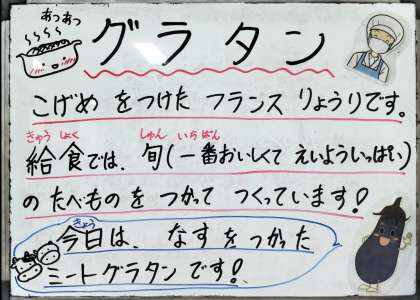 あつあつ
グラタン
こげめをつけたフランスりょうりです。
きゅうしょく しゅん いちばん
給食では、旬(一番おいしくてえいよういっぱい)
のたべものをつかってつくっています!
きょう
今日は、なすをつかった
ミートグラタンです!